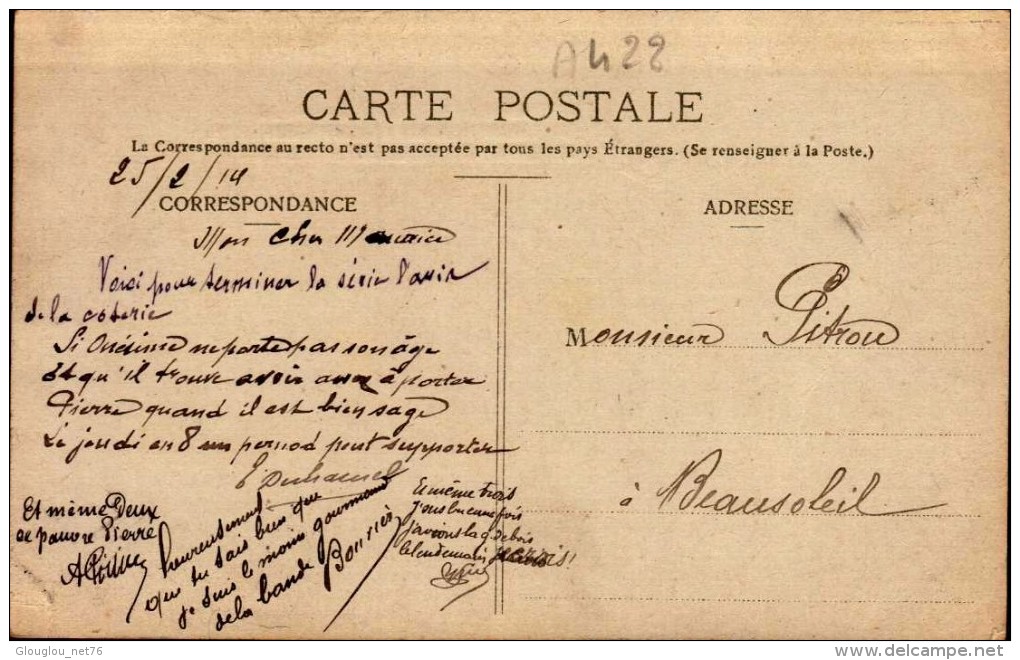 A422
CARTE POSTALE
La Correspondance au recto n'est pas acceptée par tous les pays Étrangers. (Se renseigner à la Poste.)
25/2/14
CORRESPONDANCE
Mon Cher Maurice
Voici pour terminer la série l'avis
de la coterie
Si Onésime ne porte pas son âge
Et qu'il trouve avoir assez à porter
Pierre quand il est bien sage
Le jeudi en 8 un pernod peut supporter
E Duhamel
Et même Deux
ce pauvre Pierre
heureusement
que tu sais bien que
je suis le moins gourmand
de la bande
Et même trois
J'ous bu une fois
J'avions la g. de bois
le lendemain je crois!
ADRESSE
Monsieur Pitrou
à Beausoleil
Glouglou_net76